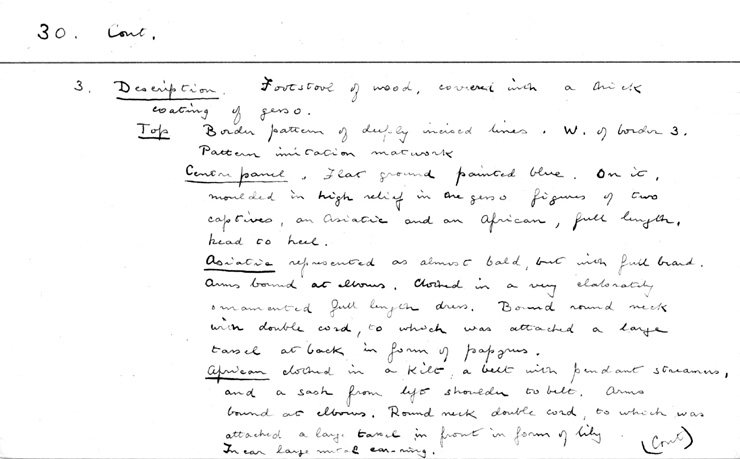 30. Cont.
3. Description. Footstool of wood, covered with a thick
coating of gesso.
Top Border pattern of deeply incised lines. W. of border 3.
Pattern imitation matwork
Centre panel. Flat ground painted blue. On it,
moulded in high relief in the gesso figures of two
captives, an Asiatic and an African, full length,
head to heel.
Asiatic represented as almost bald, but with full beard.
Arms bound at elbows. Clothed in a very elaborately
ornamented full length dress. Bound round neck
with double cord, to which was attached a large
tassel at back in form of papyrus.
African clothed in a kilt, a belt with pendant streamers,
and a sash from left shoulder to belt. Arms
bound at elbows. Round neck double cord, to which was
attached a large tassel in front in form of lily.
In ear large metal ear-ring. (Cont)